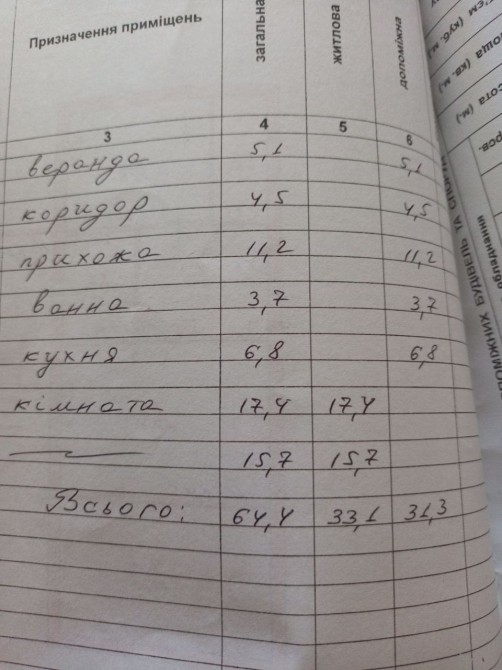 Призначення приміщень загальна житлова допоміжна
3 4 5 6
веранда 5,1 5,1
коридор 4,5 4,5
прихожа 11,2 11,2
ванна 3,7 3,7
кухня 6,8 6,8
кімната 17,4 17,4
15,7 15,7
Всього: 64,4 33,1 31,3
(куб. м.)
(кв. м.)
(м.)
БУДІВЕЛЬ ТА